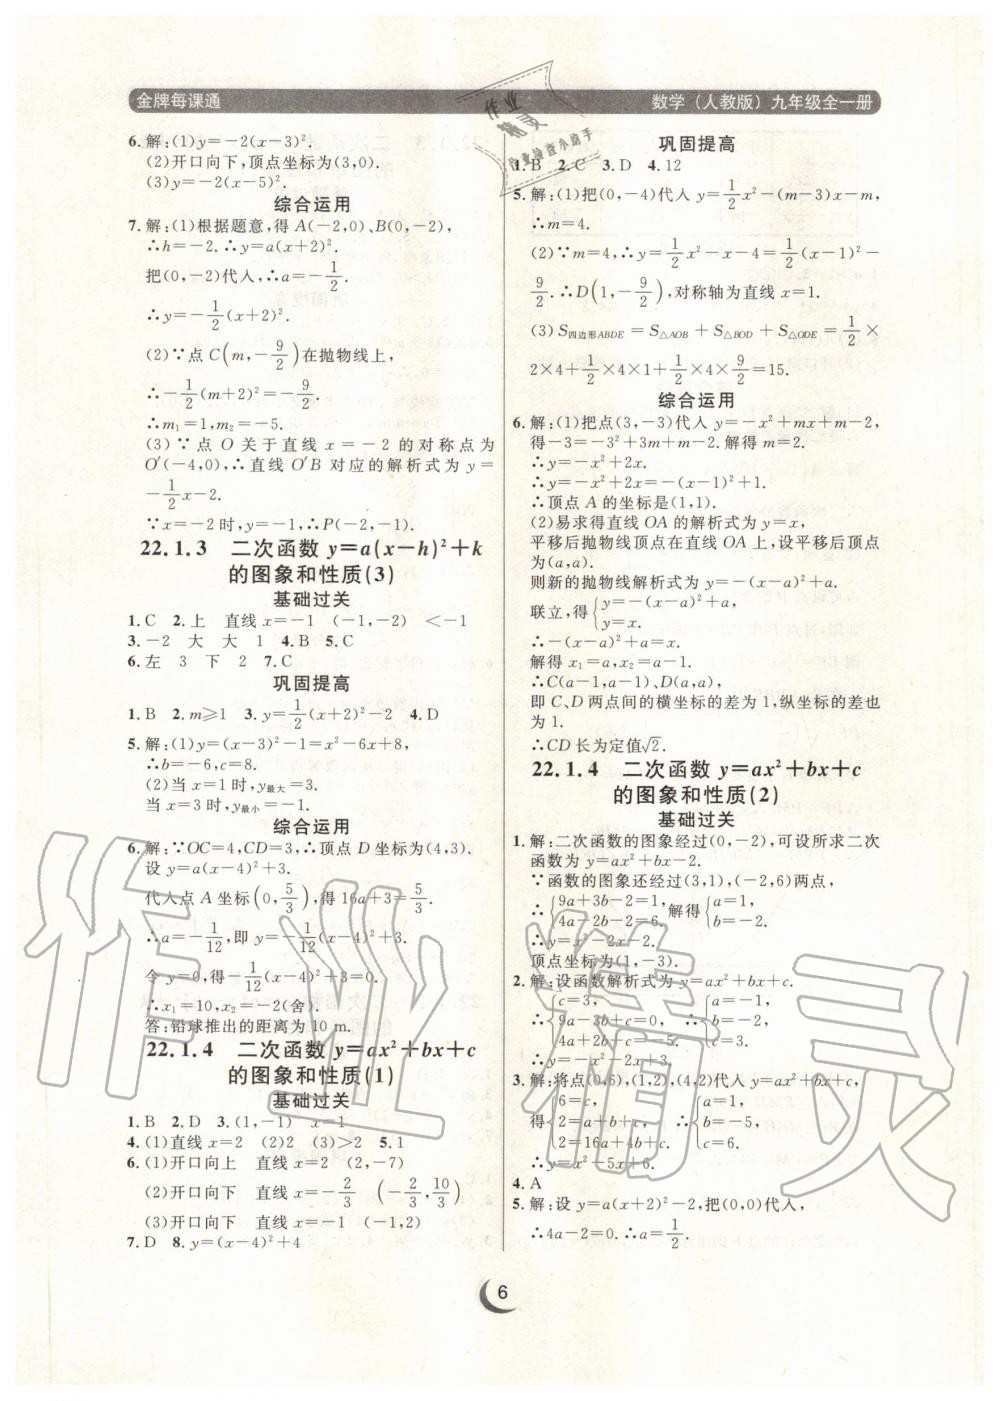 金牌每课通
数学（人教版）九年级全一册
6.解:(1)y=-2(x-3)².
(2)开口向下,顶点坐标为(3,0).
(3)y=-2(x-5)².
综合运用
7.解:(1)根据题意,得A(-2,0)、B(0,-2),
∴h=-2.∴y=a(x+2)².
把(0,-2)代入,∴a=-1/2.
∴y=-1/2(x+2)².
(2)∵点C(m,-9/2)在抛物线上,
∴-1/2(m+2)²=-9/2.
∴m₁=1,m₂=-5.
(3)∵点O关于直线x=-2的对称点为
O′(-4,0),∴直线O′B对应的解析式为y=
-1/2x-2.
∵x=-2时,y=-1,∴P(-2,-1).
22.1.3 二次函数y=a(x-h)²+k
的图象和性质(3)
基础过关
1.C 2.上 直线x=-1 (-1,-2) <-1
3.-2 大 大 1 4.B 5.C
6.左 3 下 2 7.C
巩固提高
1.B 2.m≥1 3.y=1/2(x+2)²-2 4.D
5.解:(1)y=(x-3)²-1=x²-6x+8,
∴b=-6,c=8.
(2)当x=1时,y最大=3.
当x=3时,y最小=-1.
综合运用
6.解:∵OC=4,CD=3,∴顶点D坐标为(4,3).
设y=a(x-4)²+3.
代入点A坐标(0,5/3),得16a+3=5/3.
∴a=-1/12,即y=-1/12(x-4)²+3.
令y=0,得-1/12(x-4)²+3=0.
∴x₁=10,x₂=-2(舍).
答:铅球推出的距离为10 m.
22.1.4 二次函数y=ax²+bx+c
的图象和性质(1)
基础过关
1.B 2.D 3.(1,-1) x=1
4.(1)直线x=2 (2)2 (3)>2 5.1
6.(1)开口向上 直线x=2 (2,-7)
(2)开口向下 直线x=-2/3 (-2/3,10/3)
(3)开口向下 直线x=-1 (-1,2)
7.D 8.y=(x-4)²+4
巩固提高
1.B 2.C 3.D 4.12
5.解:(1)把(0,-4)代入y=1/2x²-(m-3)x-m,
∴m=4.
(2)∵m=4,∴y=1/2x²-x-4=1/2(x-1)²-
9/2.∴D(1,-9/2),对称轴为直线x=1.
(3)S四边形ABDE=S△AOB+S△BOD+S△ODE=1/2×
2×4+1/2×4×1+1/2×4×9/2=15.
综合运用
6.解:(1)把点(3,-3)代入y=-x²+mx+m-2,
得-3=-3²+3m+m-2.解得m=2.
∴y=-x²+2x.
∴y=-x²+2x=-(x-1)²+1.
∴顶点A的坐标是(1,1).
(2)易求得直线OA的解析式为y=x,
平移后抛物线顶点在直线OA上,设平移后顶点
为(a,a).
则新的抛物线解析式为y=-(x-a)²+a.
联立,得{y=-(x-a)²+a, y=x.
∴-(x-a)²+a=x.
解得x₁=a,x₂=a-1.
∴C(a-1,a-1)、D(a,a),
即C、D两点间的横坐标的差为1,纵坐标的差也
为1.
∴CD长为定值√2.
22.1.4 二次函数y=ax²+bx+c
的图象和性质(2)
基础过关
1.解:二次函数的图象经过(0,-2),可设所求二次
函数为y=ax²+bx-2.
∵函数的图象还经过(3,1),(-2,6)两点,
∴{9a+3b-2=1, 4a-2b-2=6. 解得{a=1, b=-2.
∴y=x²-2x-2.
顶点坐标为(1,-3).
2.解:设函数解析式为y=ax²+bx+c.
∴{c=3, 9a-3b+c=0, 4a+2b+c=-5. ∴{a=-1, b=-2, c=3.
∴y=-x²-2x+3.
3.解:将点(0,6),(1,2),(4,2)代入y=ax²+bx+c,
得{6=c, 2=a+b+c, 2=16a+4b+c. ∴{a=1, b=-5, c=6.
∴y=x²-5x+6.
4.A
5.解:设y=a(x+2)²-2,把(0,0)代入,
∴4a-2=0.∴a=1/2.
6
作业
精灵
作业检查小助手
作业精灵